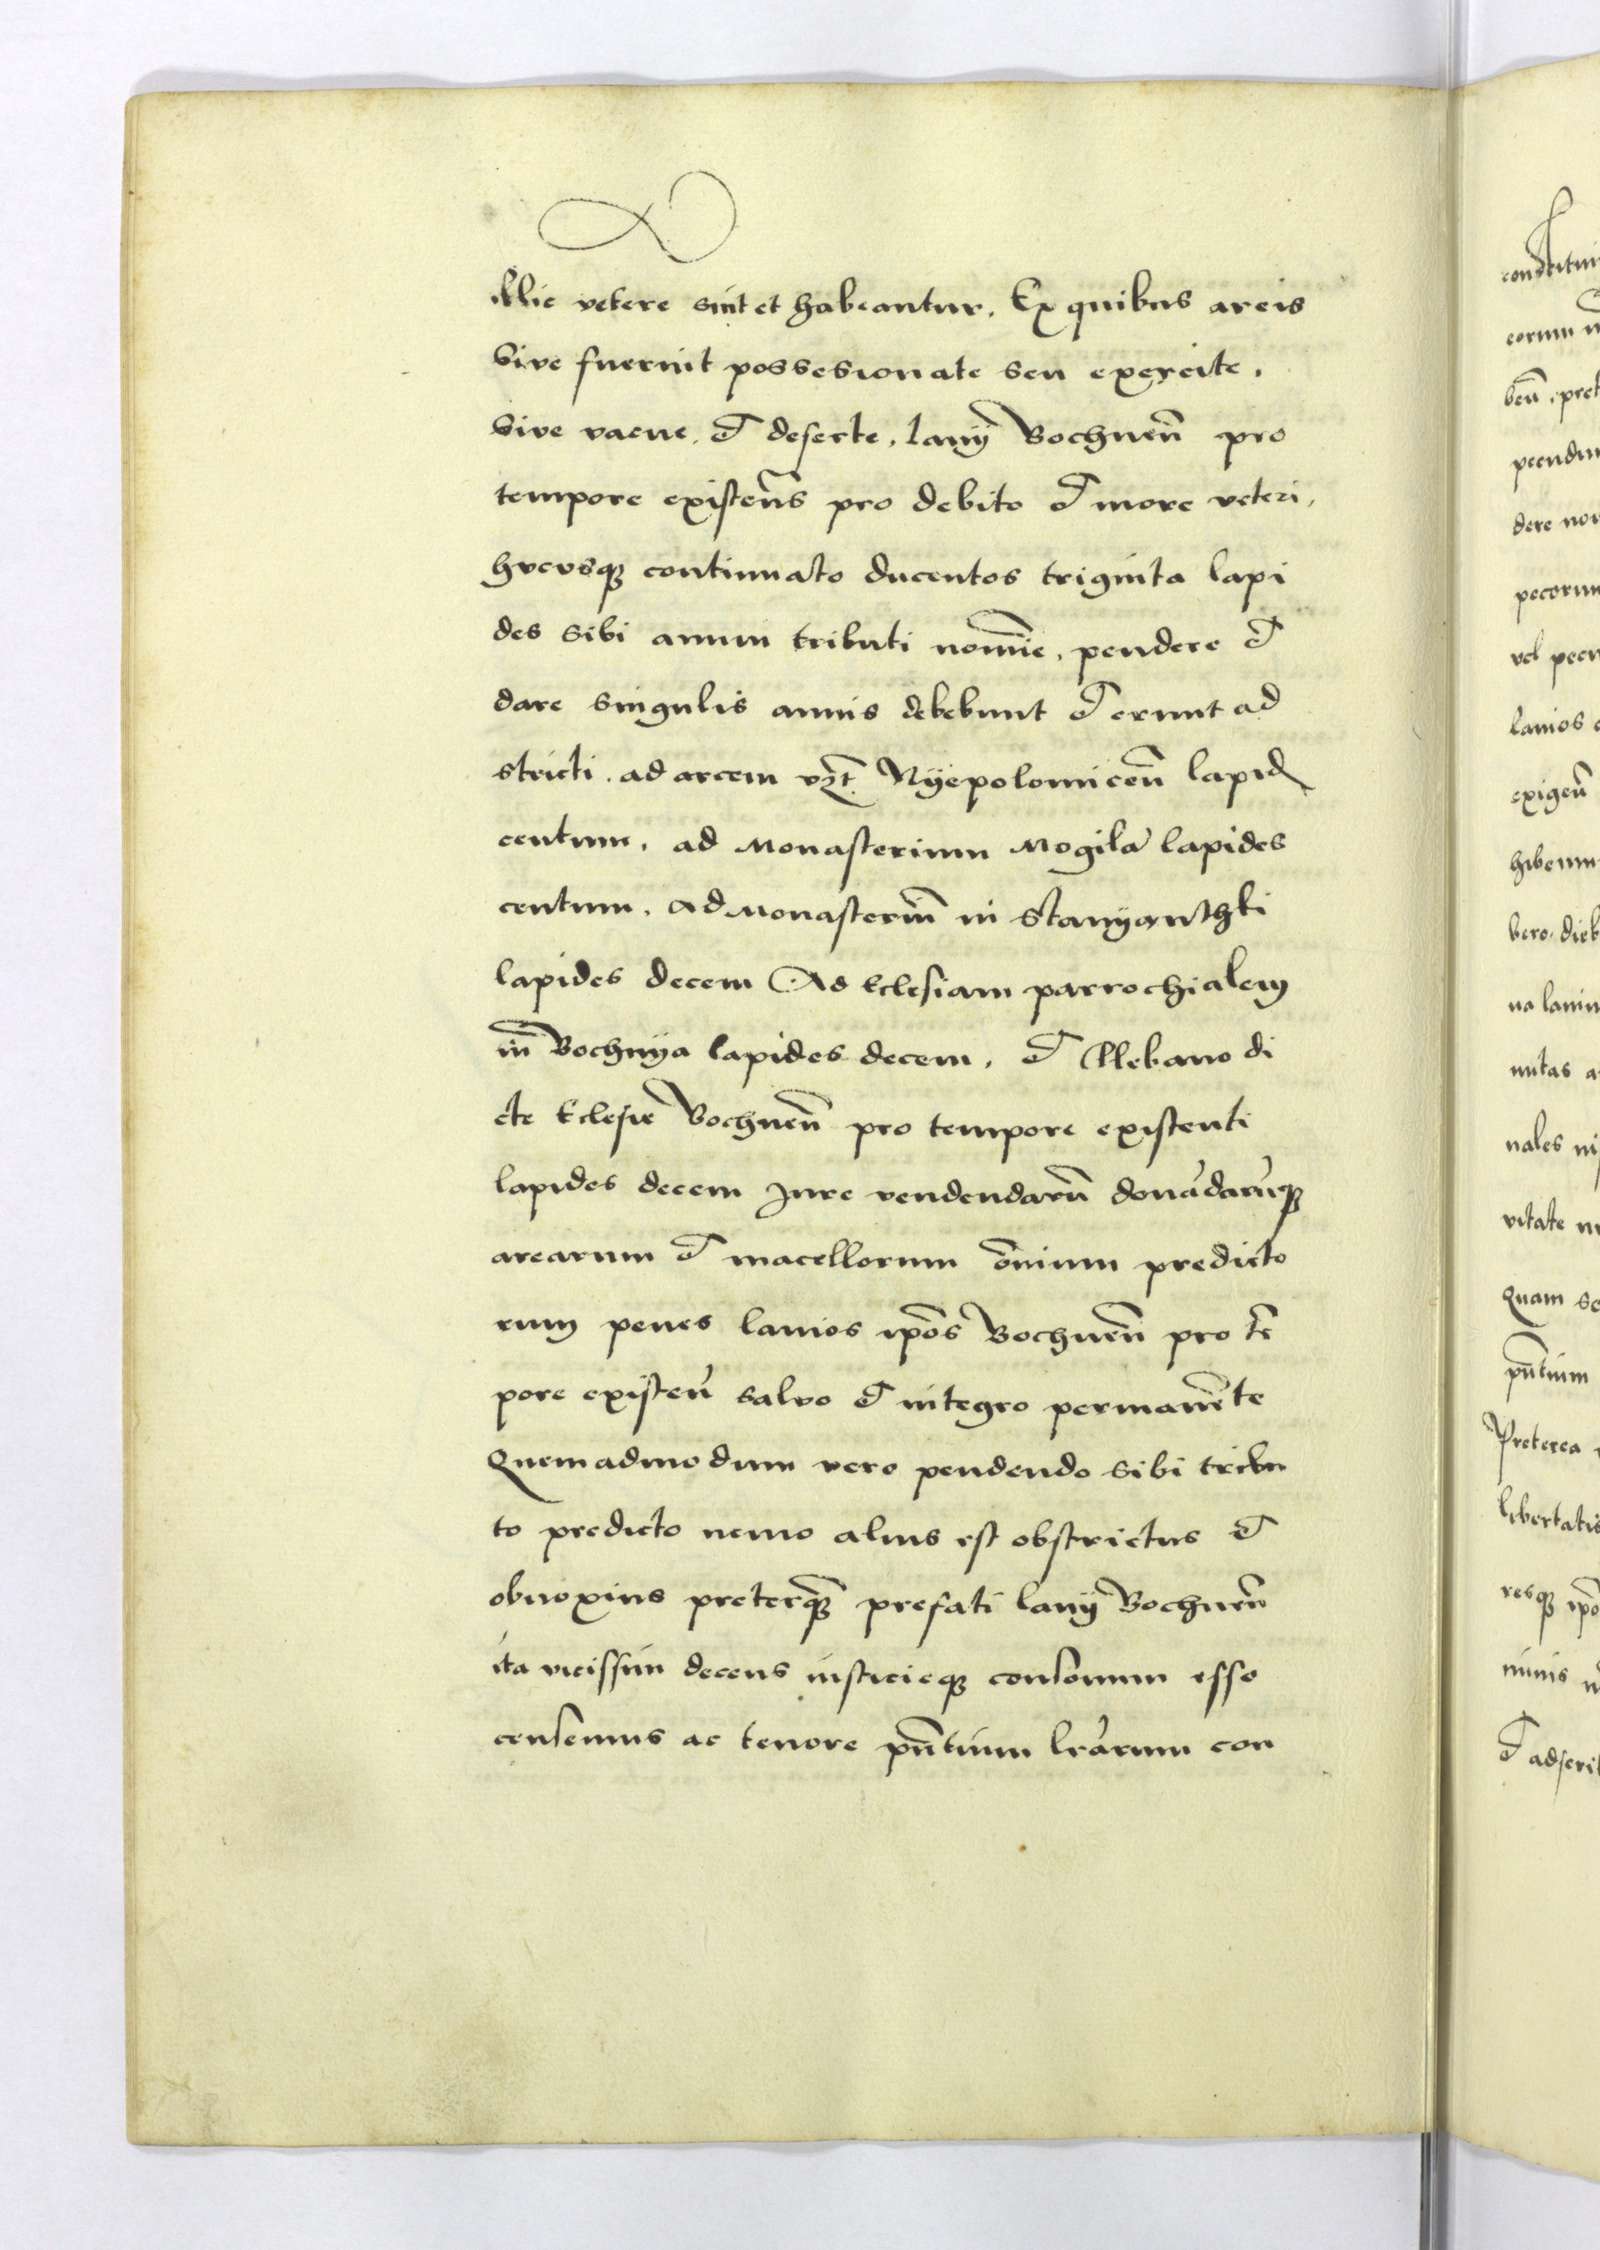 illic vetere sint et habeantur. Ex quibus areis
Sive fuerint possesionate seu exercite.
Sive vacue. et deserte. lanij Bochnen̄ pro
tempore existen̄s pro debito et more veteri,
hucusq̄ continuato ducentos triginta lapi
des sibi annui tributi nom̄ie. pendere et
dare singulis annis debebunt et erunt ad
stricti. ad arcem vz̄t Nyepolomicen̄ lapid̄
centum. ad Monasterium Mogila lapides
centum. ad Monasteriū in Stanyanthki
lapides decem Ad Eclesiam parrochialem
in Bochnya lapides decem. et Plebano di
cte Eclesie Bochnen̄ pro tempore existenti
lapides decem Jure vendendarū donādarūq̄
arearum et macellorum ōnium predicto
rum penes lanios ip̄os Bochnen̄ pro tē
pore existen̄ salvo et integro permanēte
Quemadmodum vero pendendo sibi tribu
to predicto nemo alius est obstrictus et
obnoxius preterq̄ prefati lanij Bochnen̄
ita vicissim decens iusticieq̄ consonum esse
censemus ac tenore pn̄tium lr̄arum con
constitui
eorum
ben̄. pret
pecudu
dere non
pecorum
vel pecu
lanios
exigen̄
hibemu
vero. dieb
na laniu
nutas a
nales
vitate
Quam se
pn̄tium
Preterea
libertatis
resq̄ ip̄o
nimis
et adscri